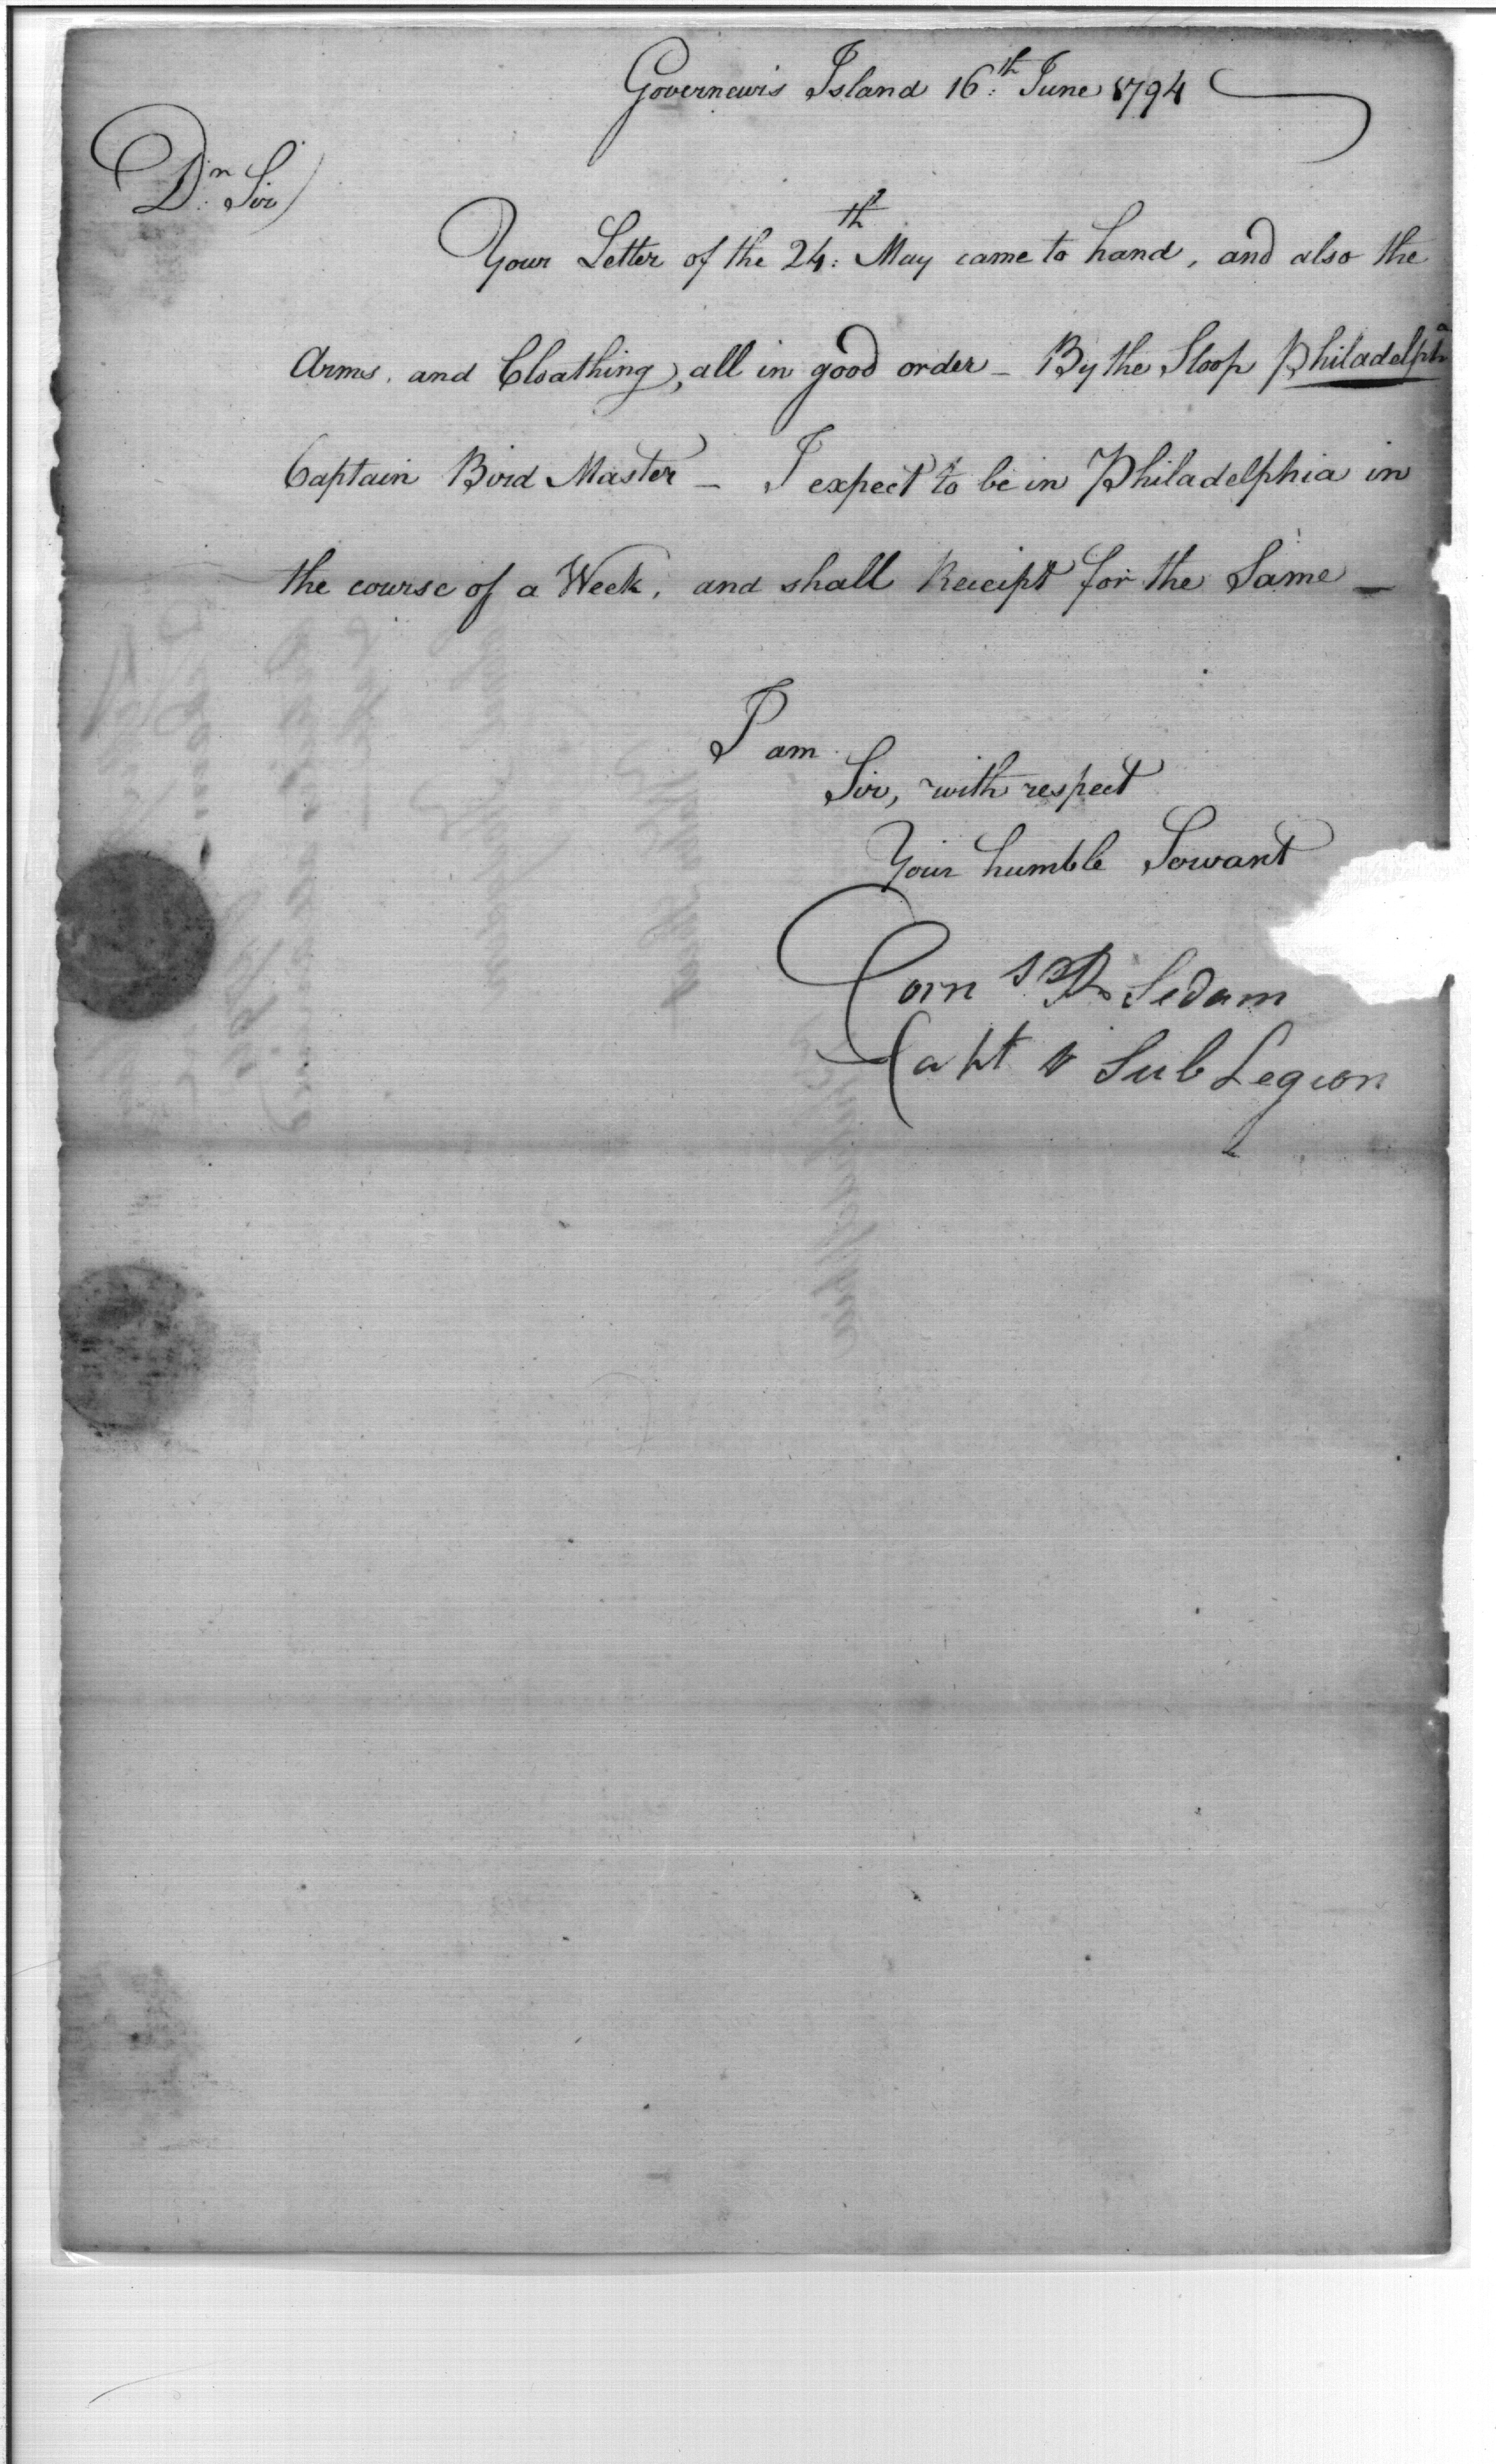 Governeurs Island 16th June 1794
Dr Sir
Your Letter of the 24th May came to hand, and also the
Arms, and Cloathing, all in good order – By the Sloop Philadelpha
Captain Bird Master – I expect to be in Philadelphia in
the course of a Week, and shall Receipt for the Same –
I am
Sir, with respect
Your humble Servant
Corns R Sedam
Capt Sub Legion